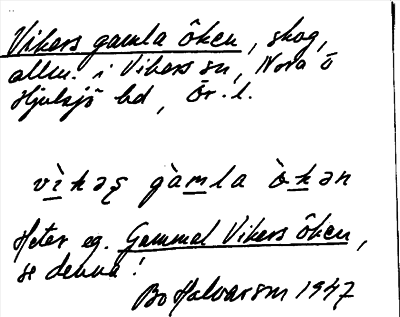 Vikers gamla ôken, skog,
allm. i Vikers sn, Nora o
Hjulsjö bd, Ör. l.
vìkəş gàmla òkən
Heter eg. Gammal Vikers ôken,
se denna!
Bo Halvarson 1947